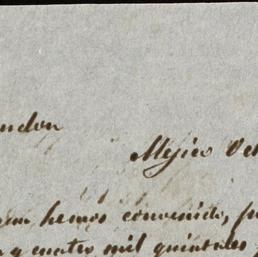 ndon
Mejico Oct
hemos convenido, p
y cuatro mil quintales